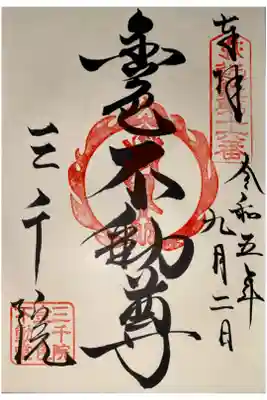 奉拝
令和五年
九月二日
金色不動尊
三千院
三千院